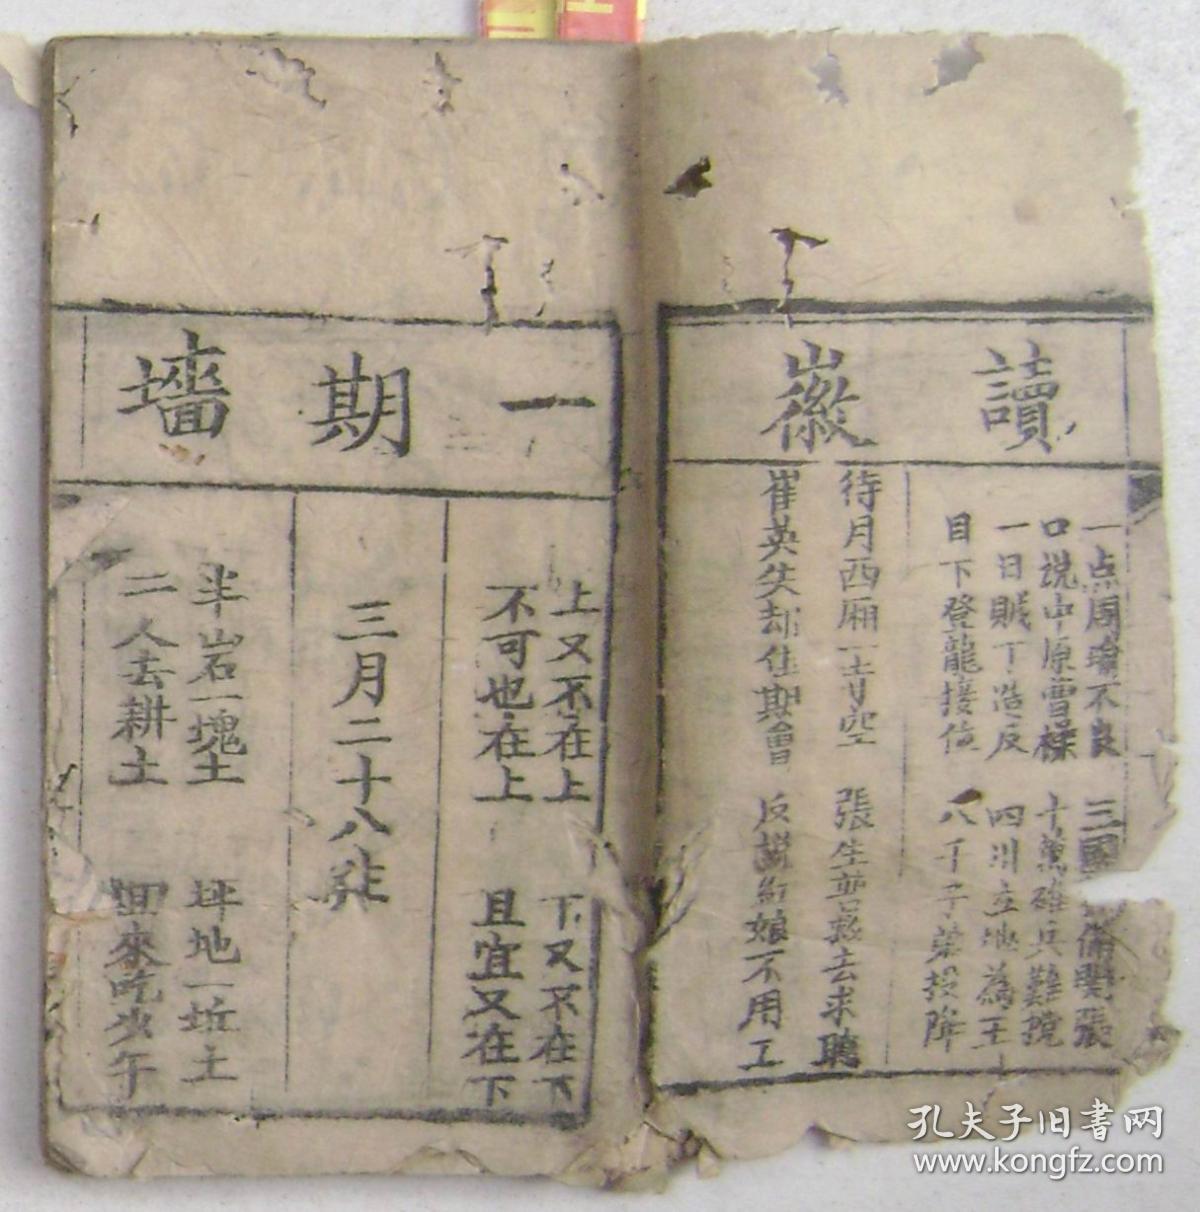 讀
一点周瑜不良
三國
備関張
口说中原曹操
十萬雄兵難攪
一日賊丁造反
四川立地為王
目下登龍接位
八千子弟投降
徽
待月西廂一寺空
張生
去求聴
崔英失却佳期會
反説紅娘不用工
一
上又不在上
下又不在下
不可也在上
且宜又在下
期
三月二十八
墻
半岩一塊土
坪地一坵土
二人去耕土
回來吃少午
孔夫子旧書网
www.kongfz.com